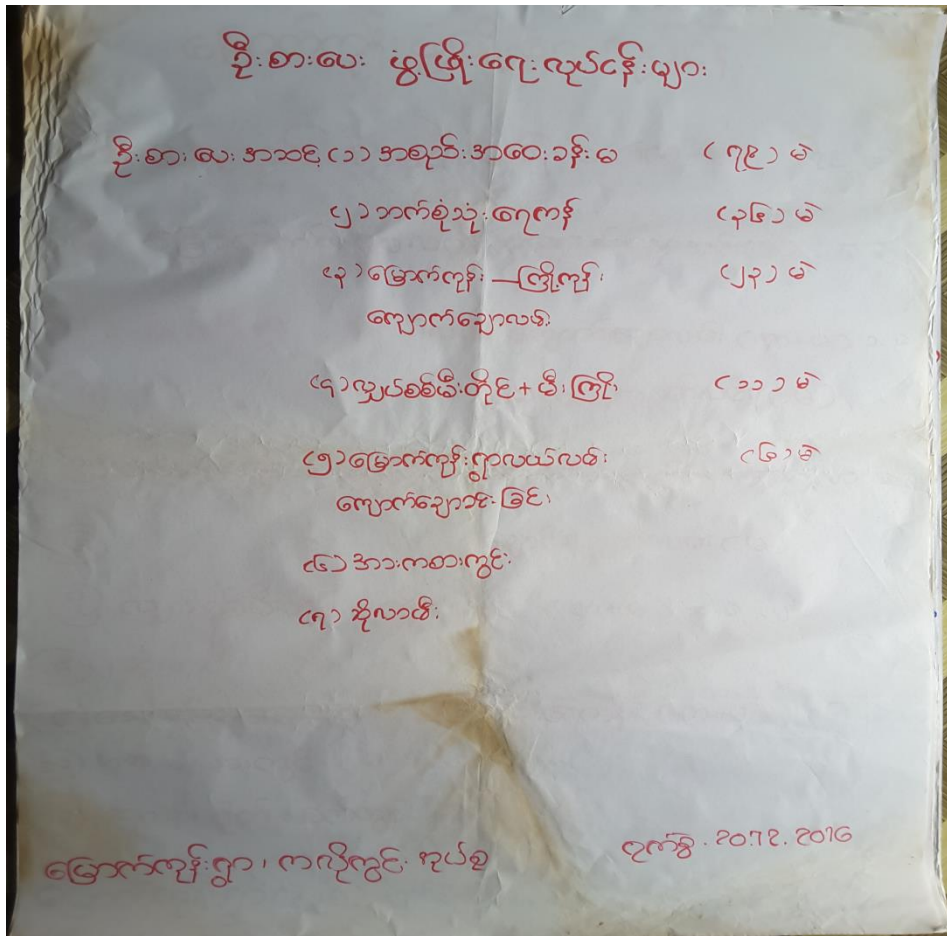 ဦးစားပေး ဖွံ့ဖြိုးရေးလုပ်ငန်းများ
ဦးစားပေးအဆင့် (၁) အစည်းအဝေးခန်းမ (၇၉) မဲ
(၂) ဘက်စုံသုံးရေကန် (၃၆) မဲ
(၃) မြောက်ကုန်း–ကြို့ကုန်း (၂၃) မဲ
ကျောက်ချောလမ်း
(၄) လျှပ်စစ်မီးတိုင် + မီးကြိုး (၁၁) မဲ
(၅) မြောက်ကုန်းရွာလယ်လမ်း (၆) မဲ
ကျောက်ချောခင်းခြင်း
(၆) အားကစားကွင်း
(၇) ဆိုလာမီး
မြောက်ကုန်းရွာ၊ ကလိုကွင်းအုပ်စု ရက်စွဲ . 20.12.2016